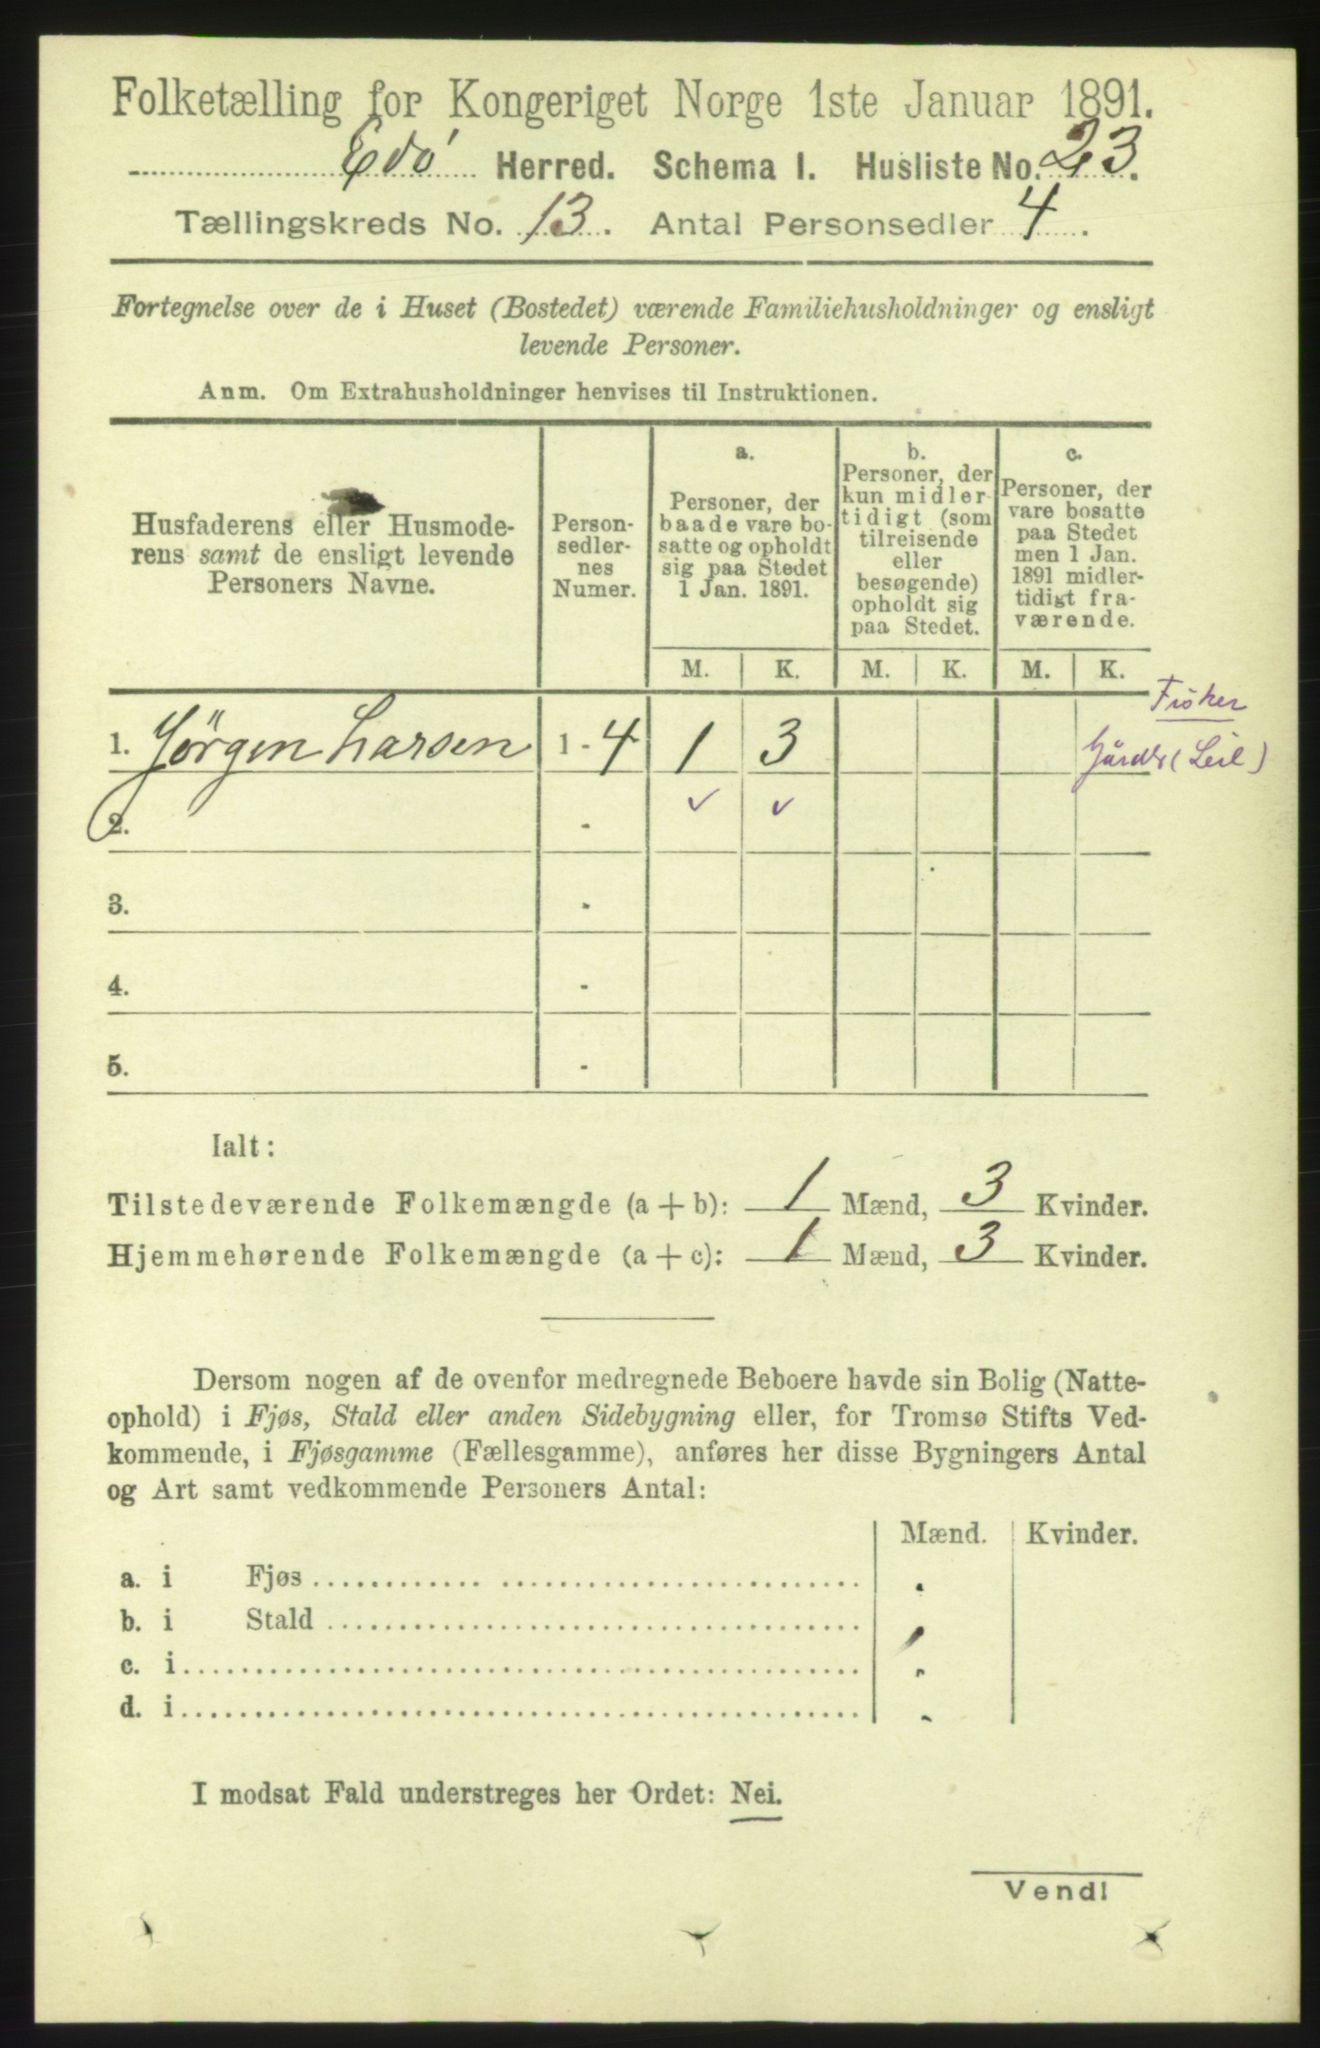 Folketælling for Kongeriget Norge 1ste Januar 1891.
Edö Herred. Schema I. Husliste No. 23.
Tællingskreds No. 13. Antal Personsedler 4.
Fortegnelse over de i Huset (Bostedet) værende Familiehusholdninger og ensligt
levende Personer.
Anm. Om Extrahusholdninger henvises til Instruktionen.
Husfaderens eller Husmode-
rens samt de ensligt levende
Personers Navne.
Person-
sedler-
nes
Numer.
a.
Personer, der
baade vare bo-
satte og opholdt
sig paa Stedet
1 Jan. 1891.
b.
Personer, der
kun midler-
tidigt (som
tilreisende
eller
besøgende)
opholdt sig
paa Stedet.
c.
Personer, der
vare bosatte
paa Stedet
men 1 Jan.
1891 midler-
tidigt fra-
værende.
M. K. M. K. M. K.
Fisker
1. Jörgen Larsen 1 - 4 1 3 Gårdbr (Leil)
2. - ✓ ✓
3. -
4. -
5. -
Ialt:
Tilstedeværende Folkemængde (a + b): 1 Mænd, 3 Kvinder.
Hjemmehørende Folkemængde (a + c): 1 Mænd, 3 Kvinder.
Dersom nogen af de ovenfor medregnede Beboere havde sin Bolig (Natte-
ophold) i Fjøs, Stald eller anden Sidebygning eller, for Tromsø Stifts Ved-
kommende, i Fjøsgamme (Fællesgamme), anføres her disse Bygningers Antal
og Art samt vedkommende Personers Antal:
Mænd. Kvinder.
a. i Fjøs
b. i Stald
c. i
d. i
I modsat Fald understreges her Ordet: Nei.
Vend!